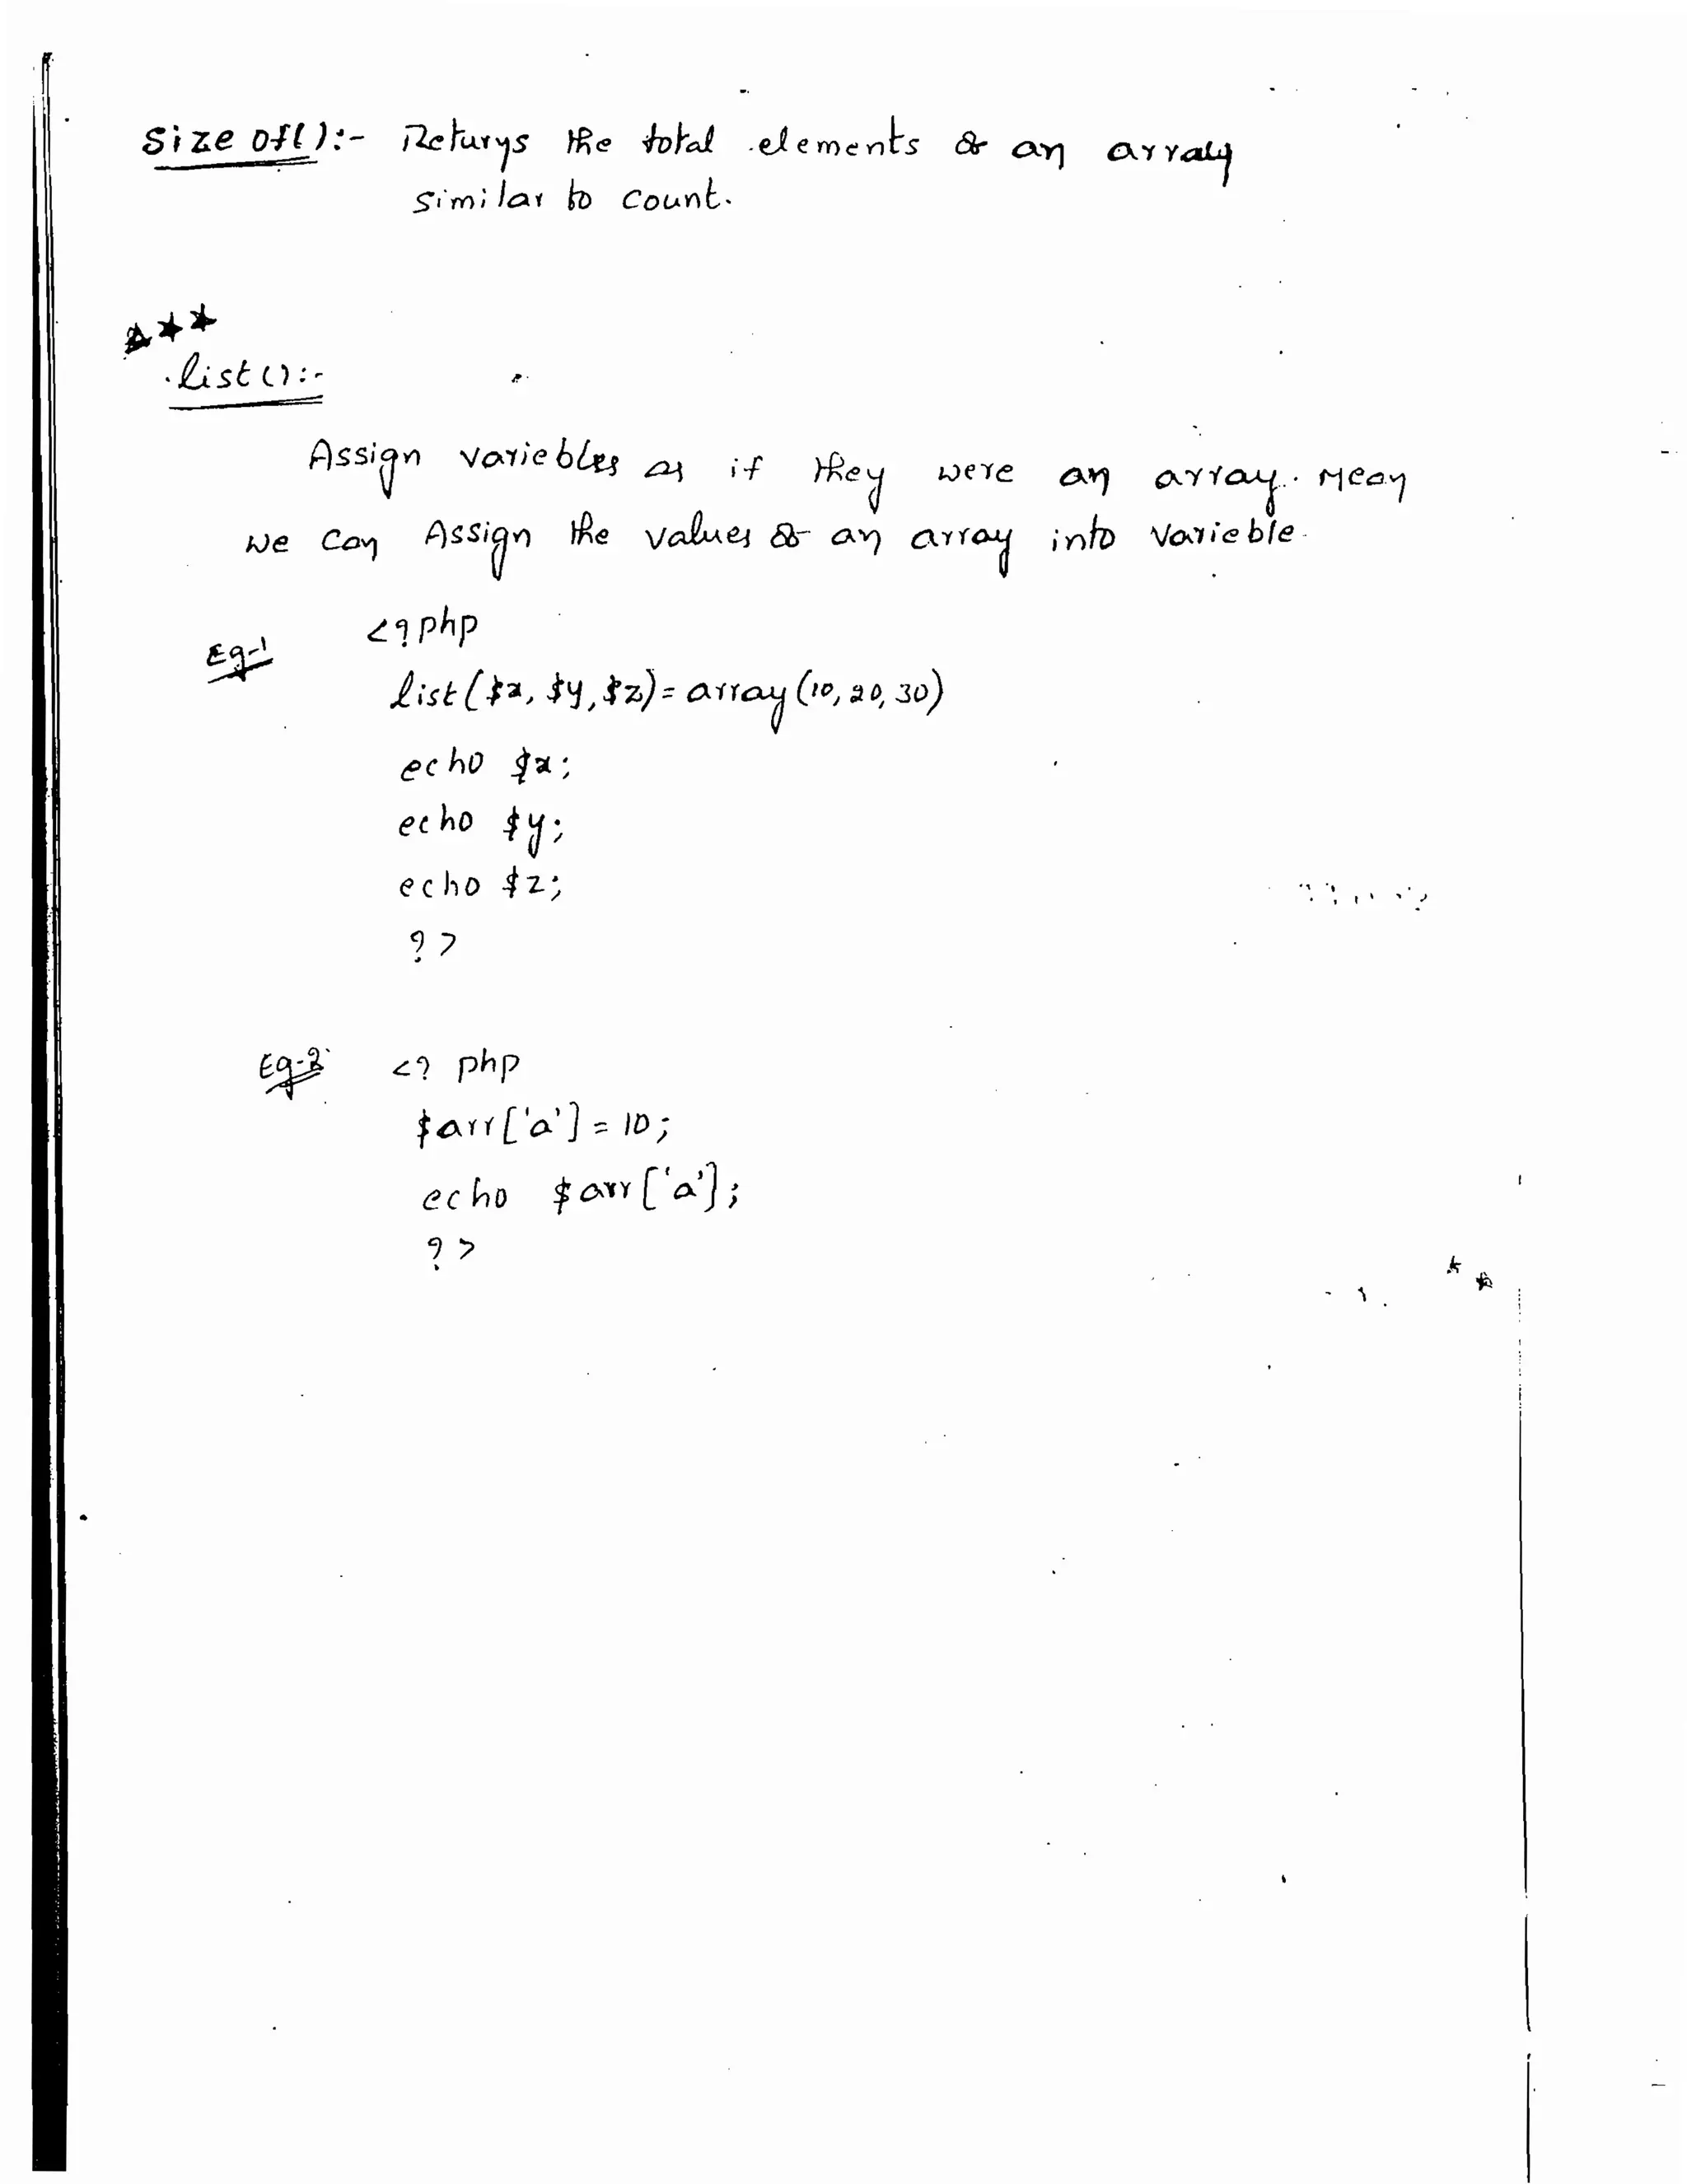 Size of():- Returns the total elements of an array
similar to count.
★★★
list():-
Assign variebles as if they were an array. Mean
we can Assign the values of an array into varieble.
Eg-1 <?php
list($x, $y, $z)= array(10, 20, 30)
echo $x;
echo $y;
echo $z;
?>
Eg-2 <? php
$arr['a'] = 10;
echo $arr['a'];
?>